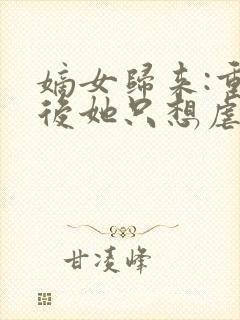 嫡女歸来:重
後她只想虐
甘凌峰